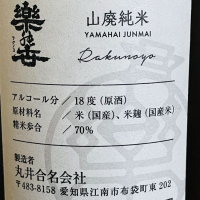 樂の世
山廃純米
YAMAHAI JUNMAI
Rakunoyo
アルコール分 / 18度(原酒)
原材料名 / 米(国産)、米麹(国産米)
精米歩合 / 70%
製造者
丸井合名会社
〒483-8158 愛知県江南市布袋町東202